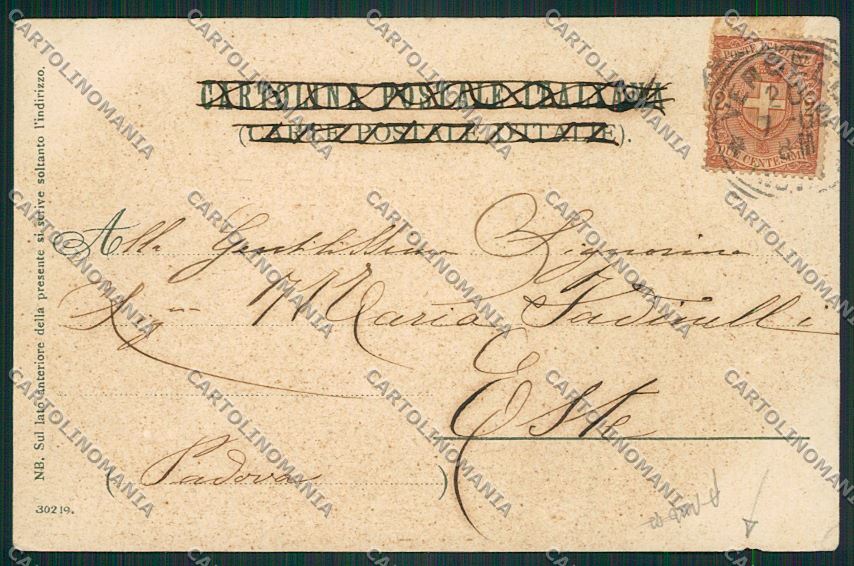 CARTOLINA POSTALE ITALIANA
(CARTE POSTALE D'ITALIE).
POSTE ITALIANE
DUE CENTESIMI
Alla Gentilissima Signorina
Sig.na Maria
Este
(Padova)
NB. Sul lato anteriore della presente si scrive soltanto l'indirizzo.
30219.
CARTOLINOMANIA